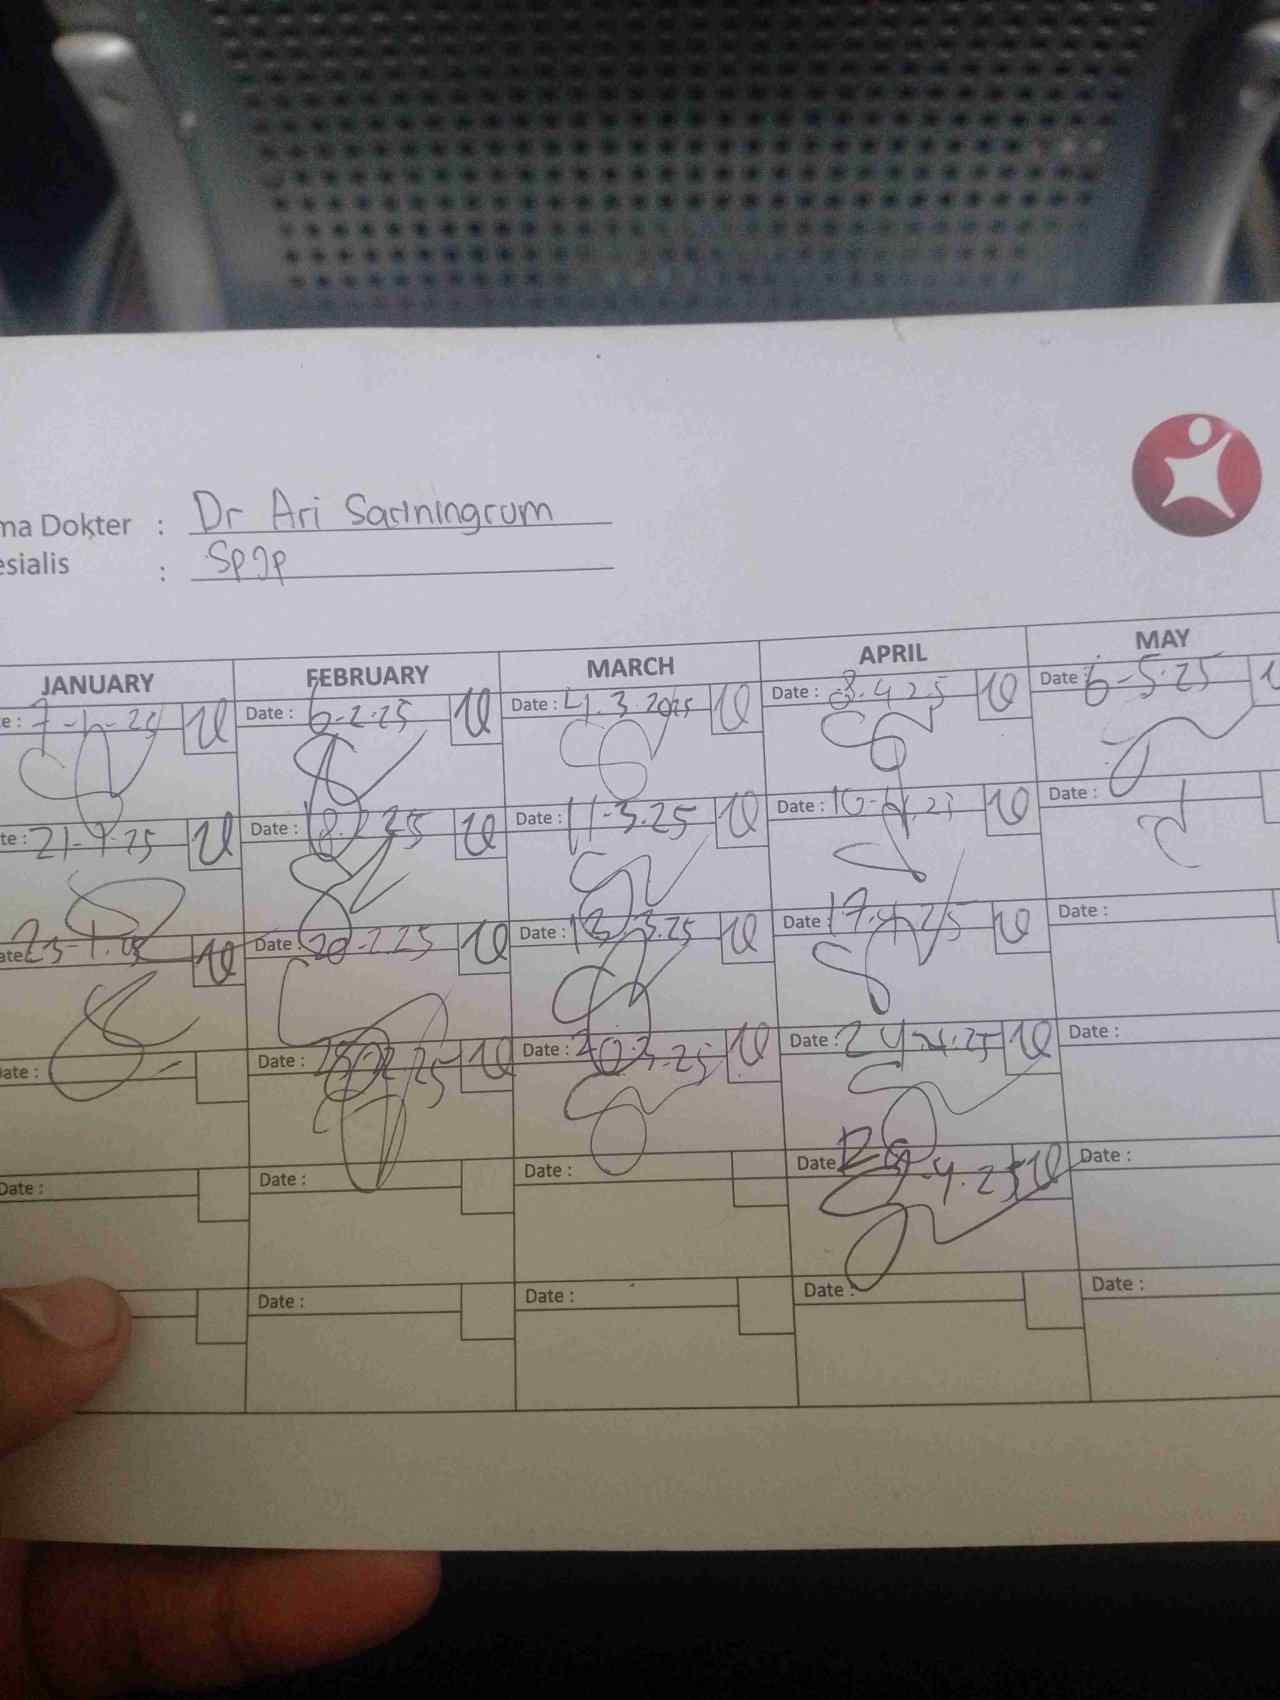 ma Dokter : Dr Ari Sariningrum
esialis : SpJp
JANUARY FEBRUARY MARCH APRIL MAY
e: 7-1-25 Date: 6-2-25 Date: 4.3.2025 Date: 3.4.25 Date: 6-5-25
te: 21-1-25 Date: 18.2.25 Date: 11-3.25 Date: 10-4.25 Date:
ate 23-1.25 Date: 20-2.25 Date: 13.3.25 Date: 17.4.25 Date:
ate: Date: 25.02.25 Date: 20.3.25 Date: 24.4.25 Date:
Date: Date: Date: Date 29-4.25 Date:
Date: Date: Date: Date: